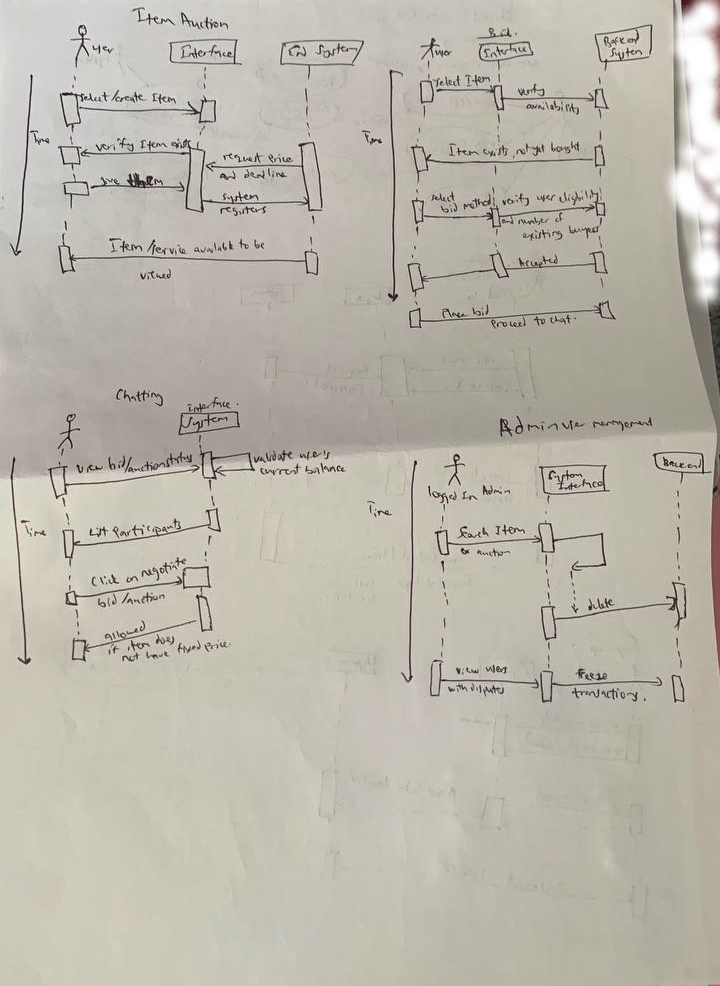 Item Auction
user
Interface
End System
Time
select/create Item
verify Item exists
request Price
and deadline
give
system
registers
Item/service available to be
viewed
Bid.
user
Interface
Backend
System
Time
select Item
verify
availability
Item exists, not yet bought
select
bid method
verify user eligibility
and number of
existing buyers
Accepted
Place bid
Proceed to chat.
Chatting
interface.
System
Time
view bid/auction status
validate users
current balance
List Participants
Click on negotiate
bid/auction
allowed
if item does
not have fixed price.
Admin user management
logged In Admin
System
Interface
Backend
Time
Search Item
or auction
delete
view users
with disputes
freeze
transactions.